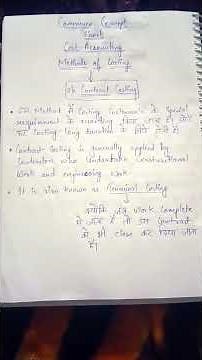 Commerce Concept
Cost Accounting
Methods of Costing
Contract Costing
इस Method में Costing Contract के Special
requirement के according किया जाता है। और
यह costing long duration के लिए होती है
Contract Costing is generally applied by
Contractors who undertake Constructional
Work and engineering work
It is also known as Terminal Costing
क्योंकि जब work complete
हो जाता है तो उस Contract
को भी close कर दिया जाता
है।